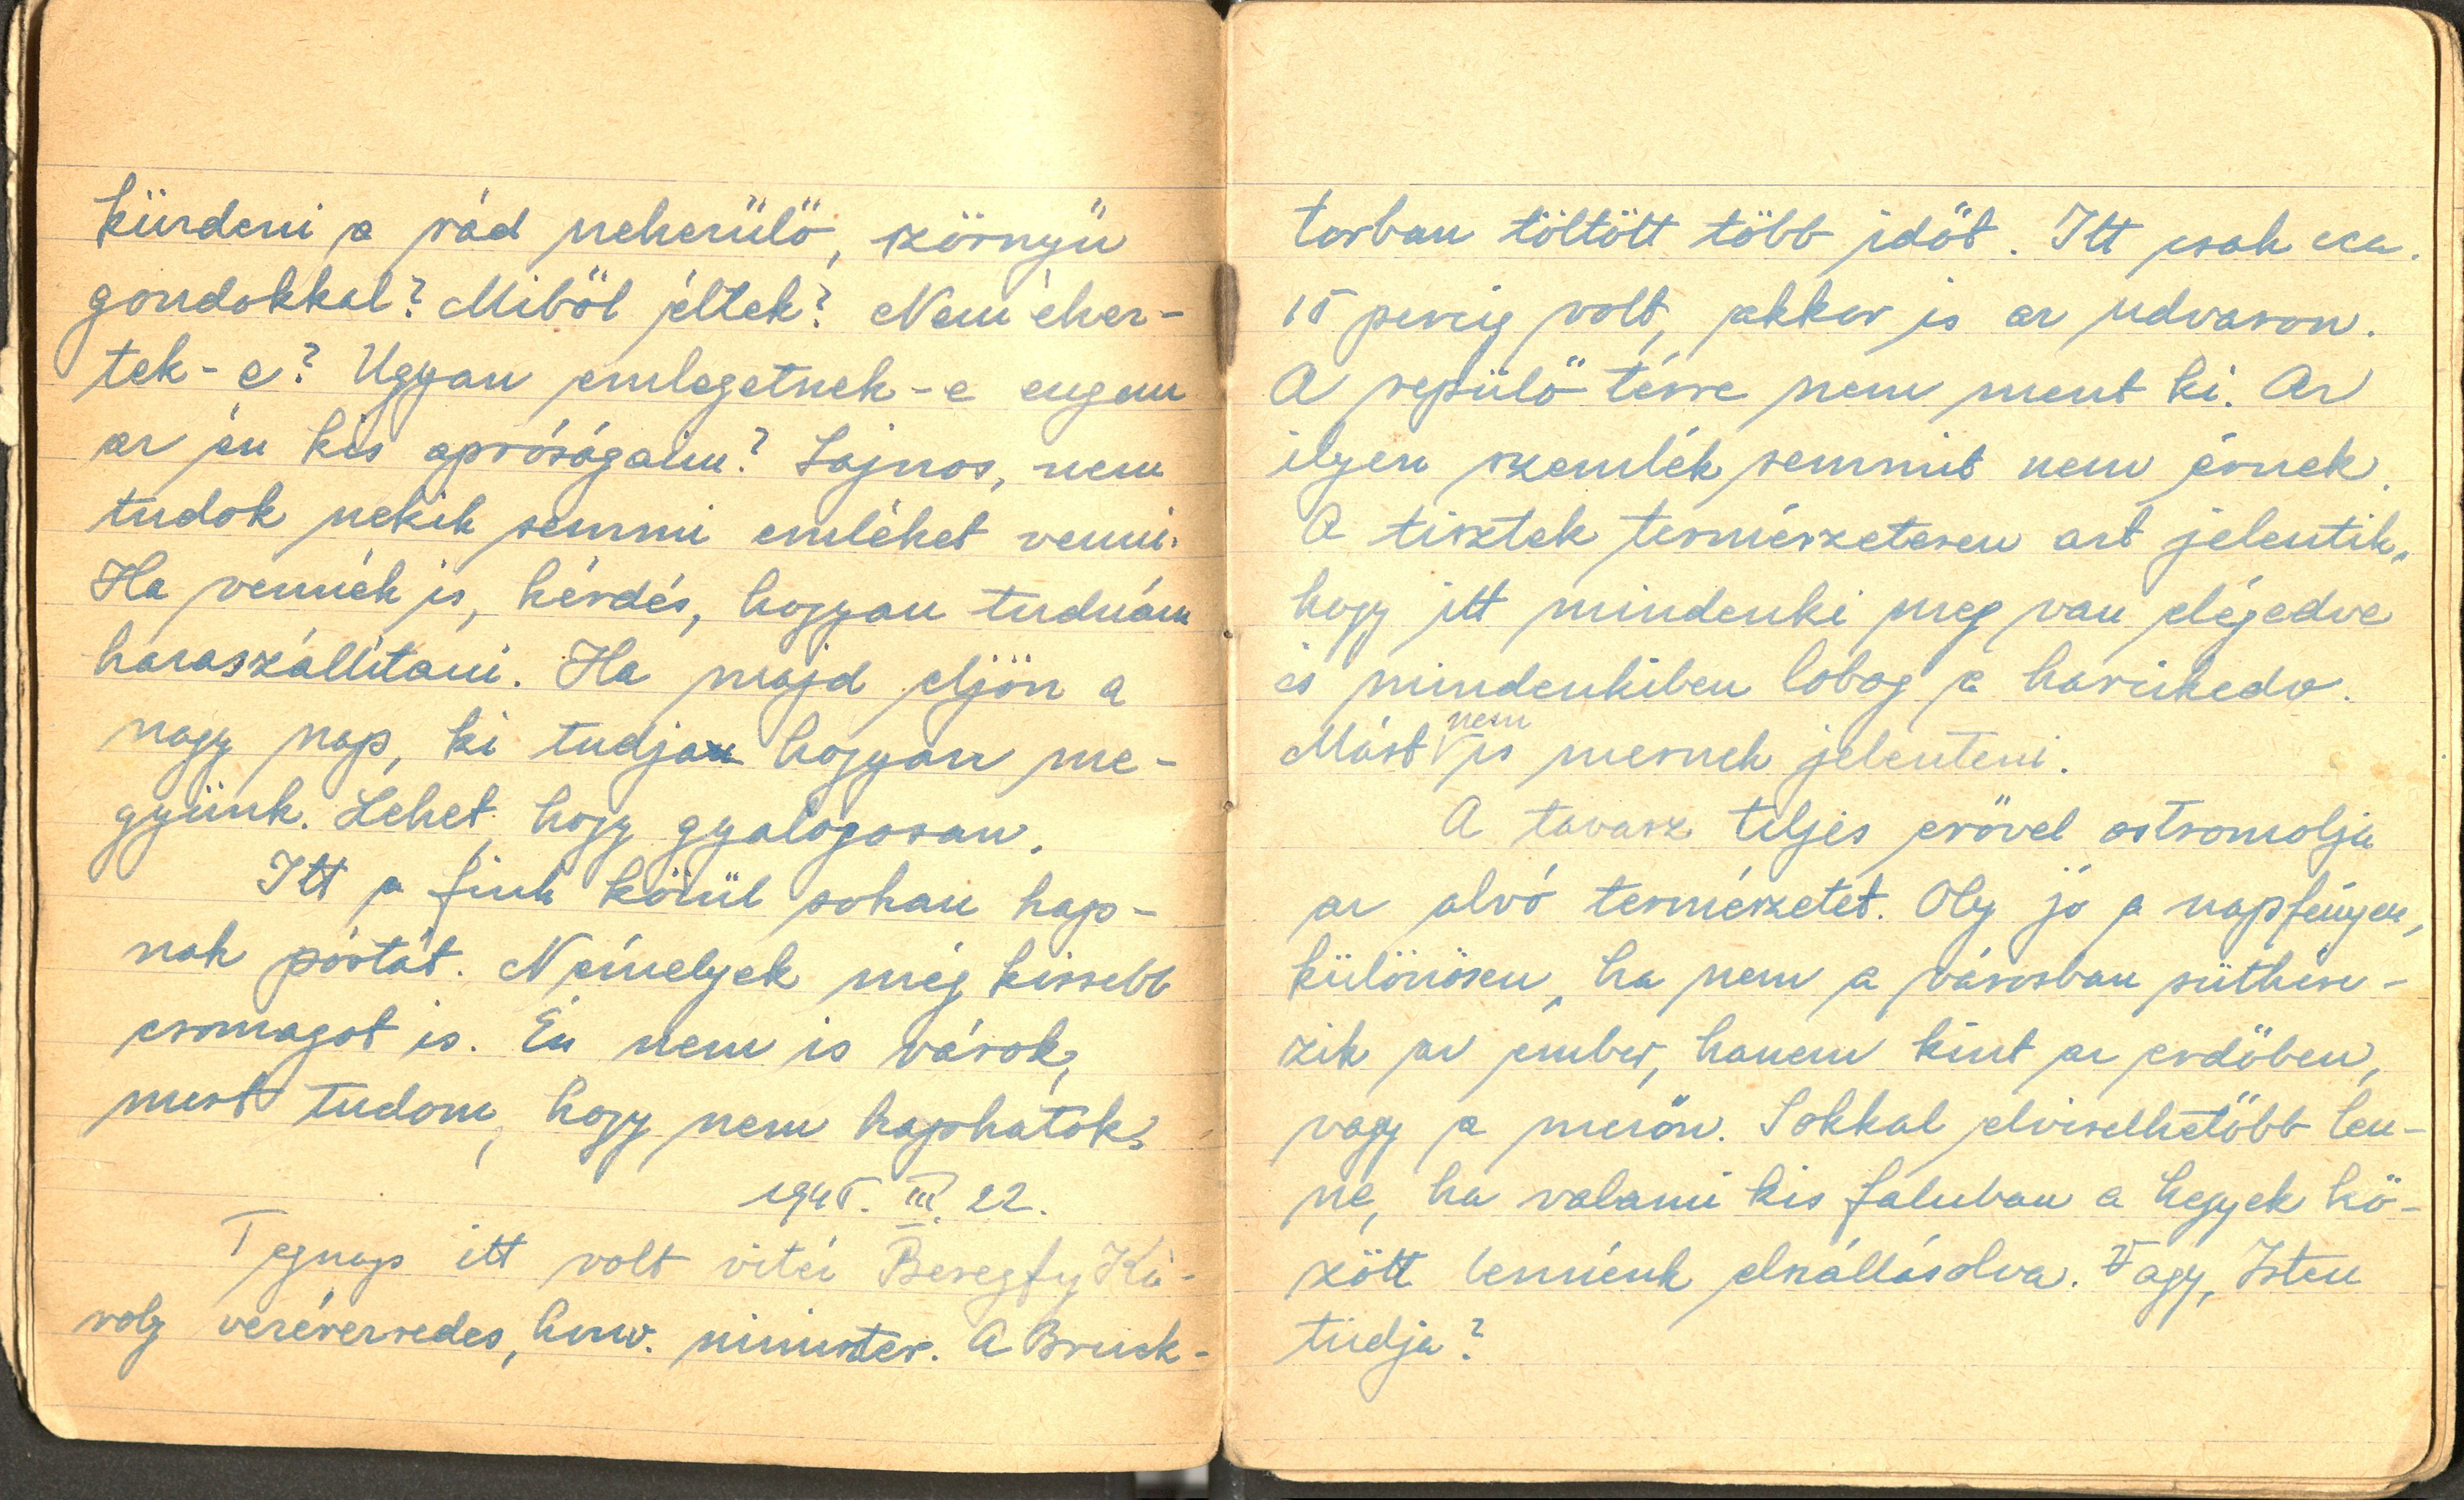 küzdeni a rád nehezülő, szörnyű
gondokkal? Miből éltek? Nem éhez-
tek-e? Ugyan emlegetnek-e engem
az én kis apróságaim? Sajnos, nem
tudok nekik semmi emléket venni.
Ha vennék is, kérdés, hogyan tudnám
hazaszállítani. Ha majd eljön a
nagy nap, ki tudja hogyan me-
gyünk. Lehet, hogy gyalogosan.
Itt a fiuk közül sokan kap-
nak póstát. Némelyek még kissebb
csomagot is. Én nem is várok,
mert tudom, hogy nem kaphatok.
1945. III. 22.
Tegnap itt volt vitéz Beregfy Ká-
roly vezérezredes, hmv. miniszter. A Bruck-
torban töltött több időt. Itt csak cca.
15 percig volt, akkor is az udvaron.
A repülő térre nem ment ki. Az
ilyen szemlék semmit nem érnek.
A tisztek természetesen azt jelentik,
hogy itt mindenki meg van elégedve
és mindenkiben lobog a harcikedv.
Mást nem is mernek jelenteni.
A tavasz teljes erővel ostromolja
az alvó természetet. Oly jó a napfényen,
különösen, ha nem a városban sütkére-
zik az ember, hanem kint az erdőben,
vagy a mezőn. Sokkal elviselhetőbb len-
ne, ha valami kis faluban a hegyek kö-
zött lennénk elszállásolva. Vagy, Isten
tudja?